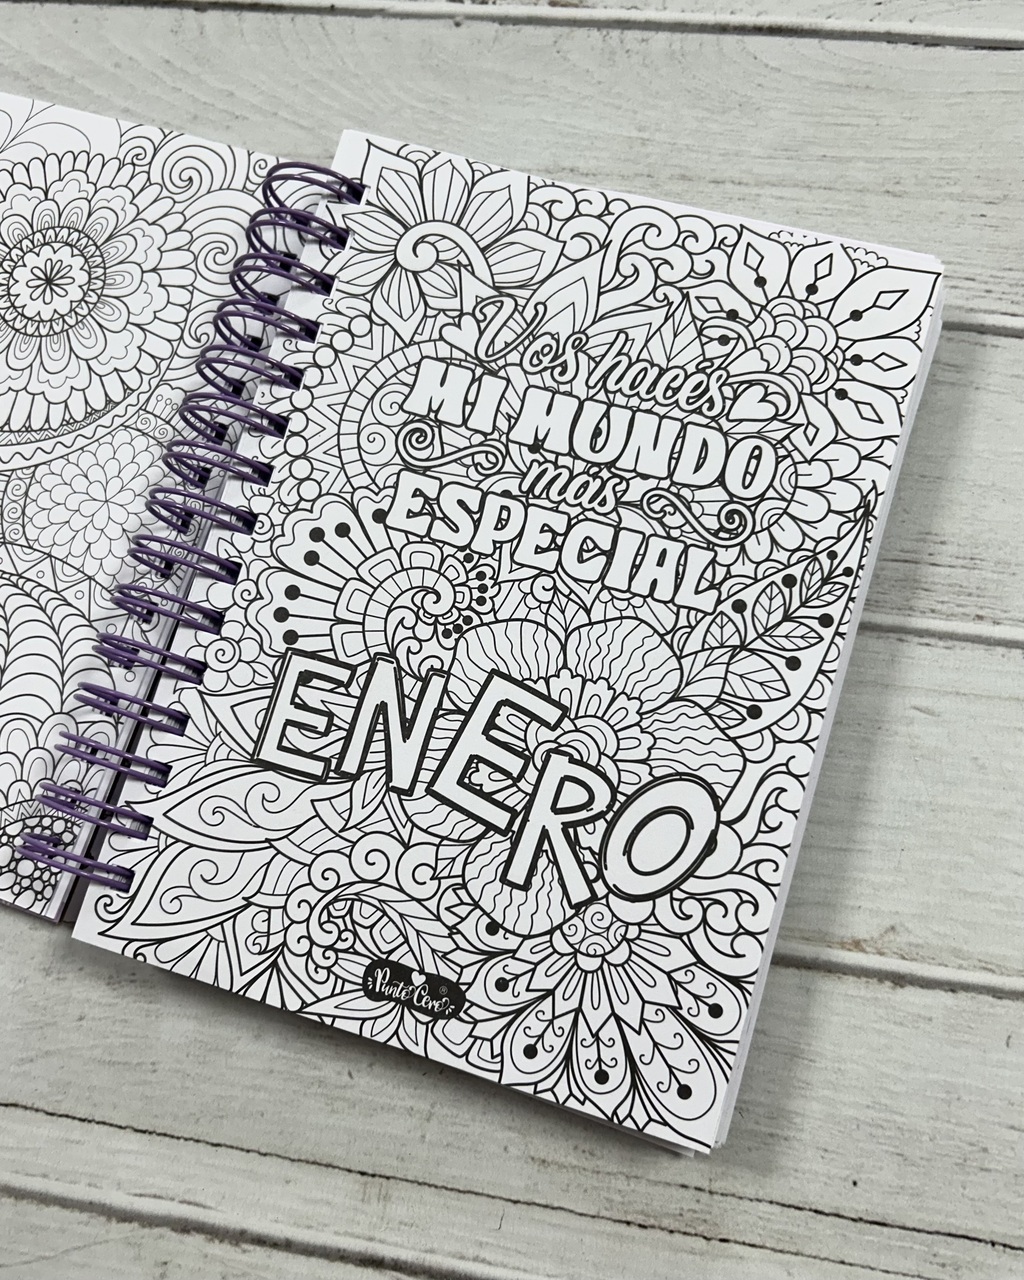 Vos hacés
MI MUNDO
más
ESPECIAL
ENERO
Punto Cero®